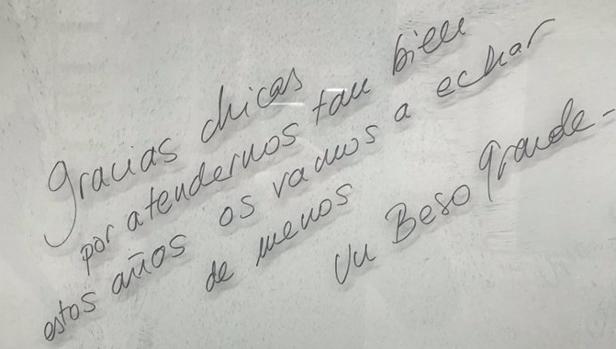 gracias chicas
por atendernos tan bien
estos años os vamos a echar
de menos
Un Beso grande-